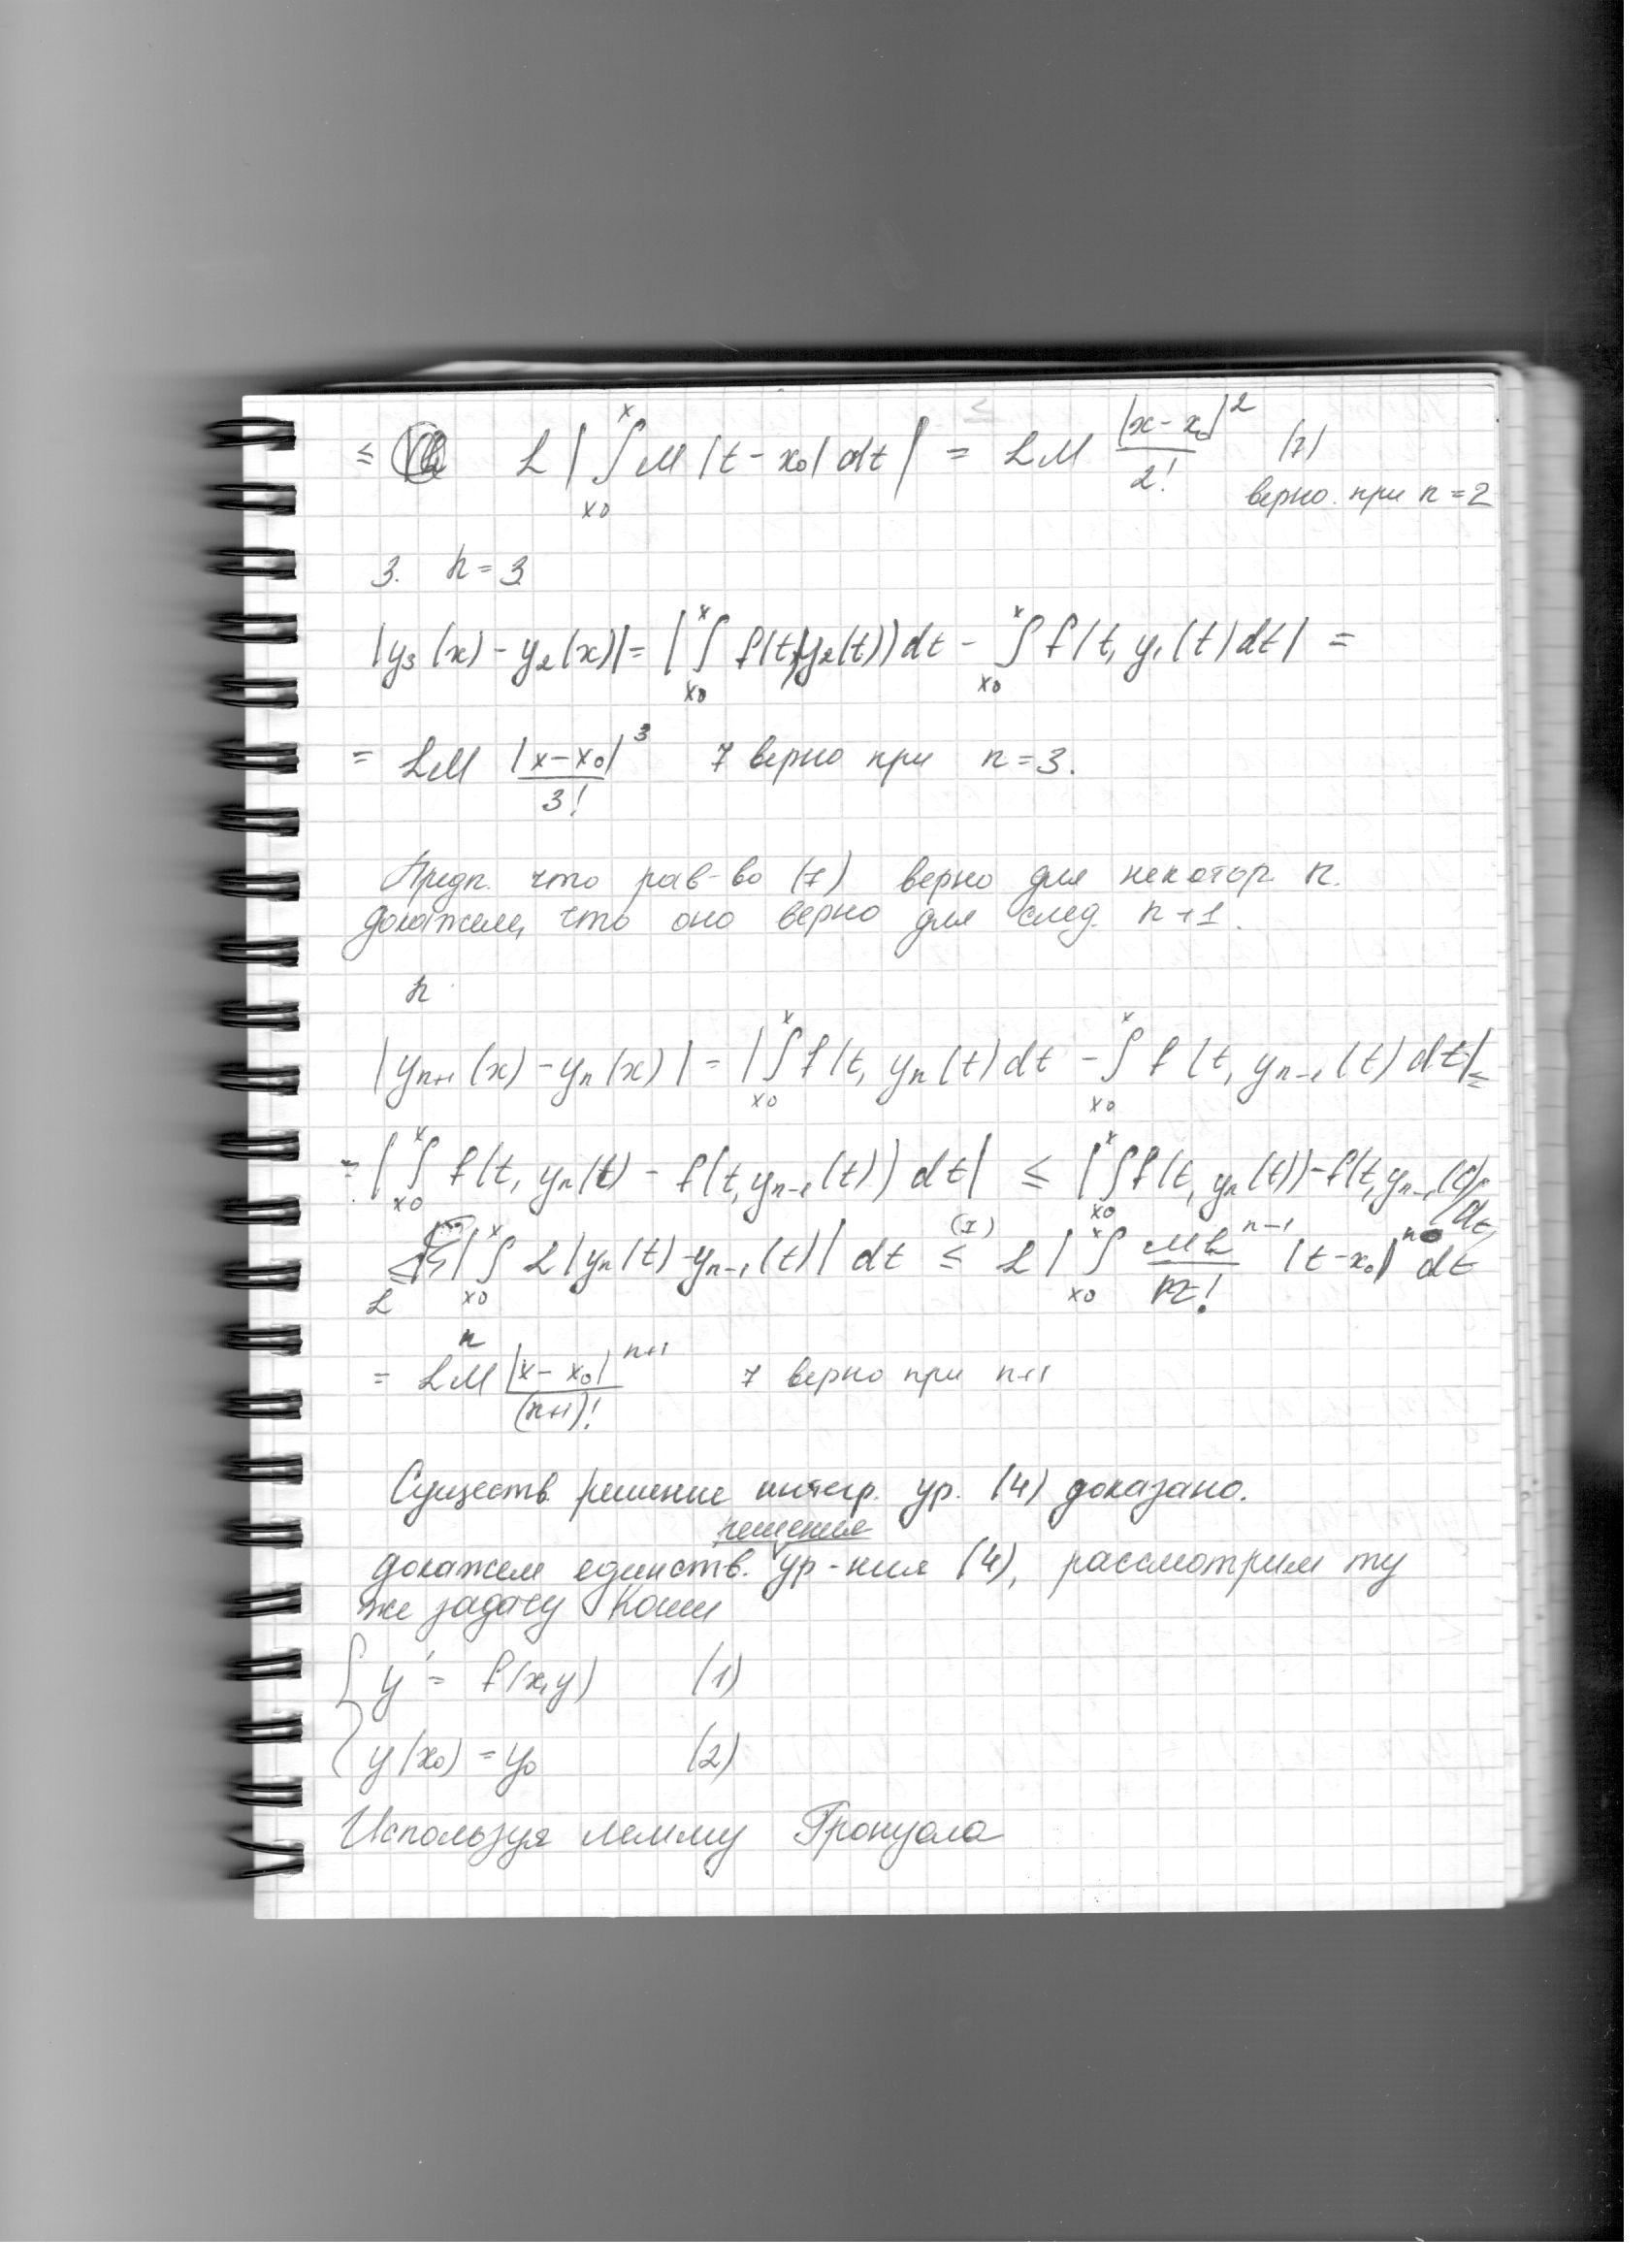 ≤ L | ∫_{x0}^{x} M |t - x0| dt | = LM |x - x0|^2 / 2! (7)
верно при n = 2
3. n = 3
|y3 (x) - y2 (x)| = | ∫_{x0}^{x} f(t, y2(t)) dt - ∫_{x0}^{x} f(t, y1(t) dt | =
= LM |x - x0|^3 / 3! 7 верно при n = 3.
Предп. что рав-во (7) верно для некотор n.
докажем, что оно верно для след. n+1.
n
|yn+1 (x) - yn (x)| = | ∫_{x0}^{x} f(t, yn (t) dt - ∫_{x0}^{x} f(t, yn-1 (t) dt | ≤
= | ∫_{x0}^{x} f(t, yn(t) - f(t, yn-1 (t)) dt | ≤ | ∫_{x0}^{x} f(t, yn(t)) - f(t, yn-1 (t) dt
≤ | ∫_{x0}^{x} L |yn (t) - yn-1 (t)| dt ≤ L | ∫_{x0}^{x} ML^{n-1} / n! |t - x0|^n dt
L
= L^n M |x - x0|^{n+1} / (n+1)! 7 верно при n+1
Существ. решение интегр. ур. (4) доказано.
решения
докажем единств. ур-ния (4), рассмотрим ту
же задачу Коши
{ y' = f(x, y) (1)
y(x0) = y0 (2)
Используя лемму Гронуола